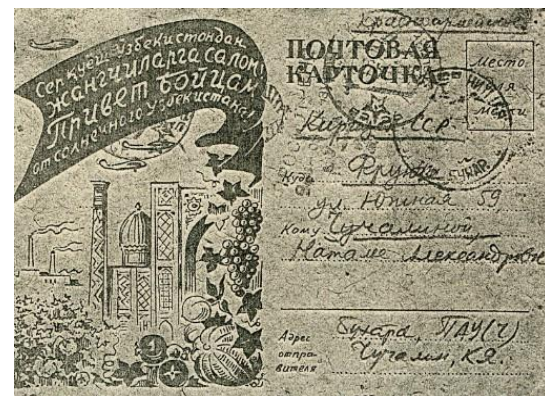 Сер қуёш Узбекистондан
Жангчиларга салом!
Привет бойцам
от солнечного Узбекистана!
Красноармейское
ПОЧТОВАЯ
КАРТОЧКА
Место
для
марки
Киргиз. ССР.
Куда
Фрунзе
ул. Южная 59
Кому Чучалиной
Наталье Александровне
Адрес
отпра-
вителя
Бухара, ПАУ(Ч)
Чучалин, К.Я.